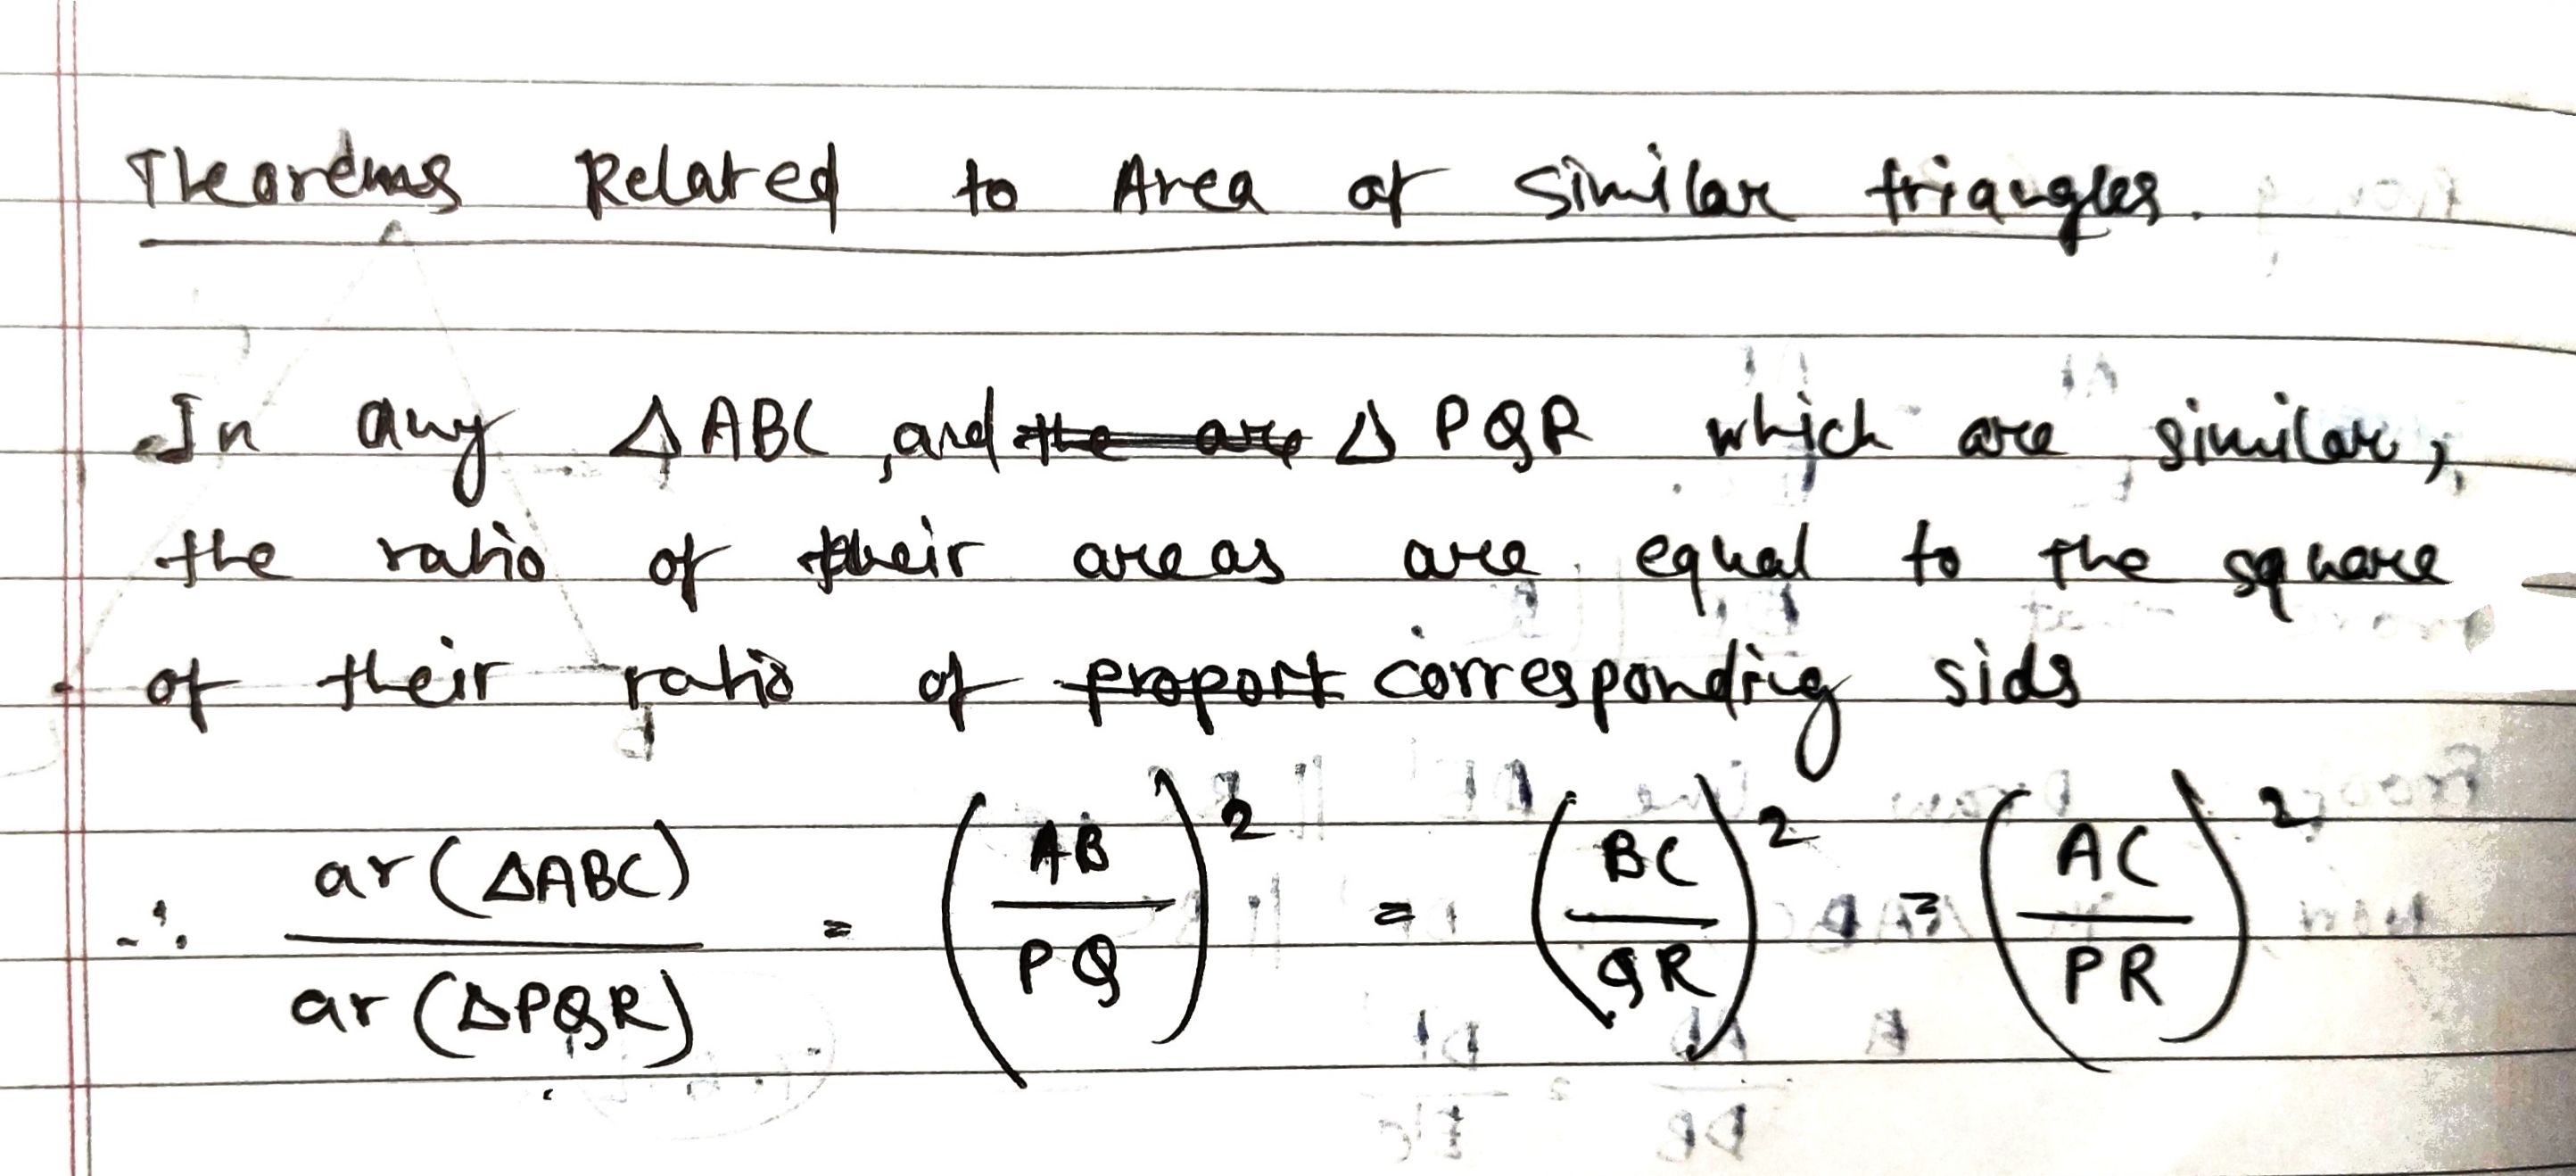 Theorems Related to Area of Similar triangles.
In any △ABC, and the are △ PQR which are similar,
the ratio of their areas are equal to the square
of their ratio of proport corresponding sids
∴ ar(△ABC) / ar(△PQR) = (AB / PQ)² = (BC / QR)² = (AC / PR)²